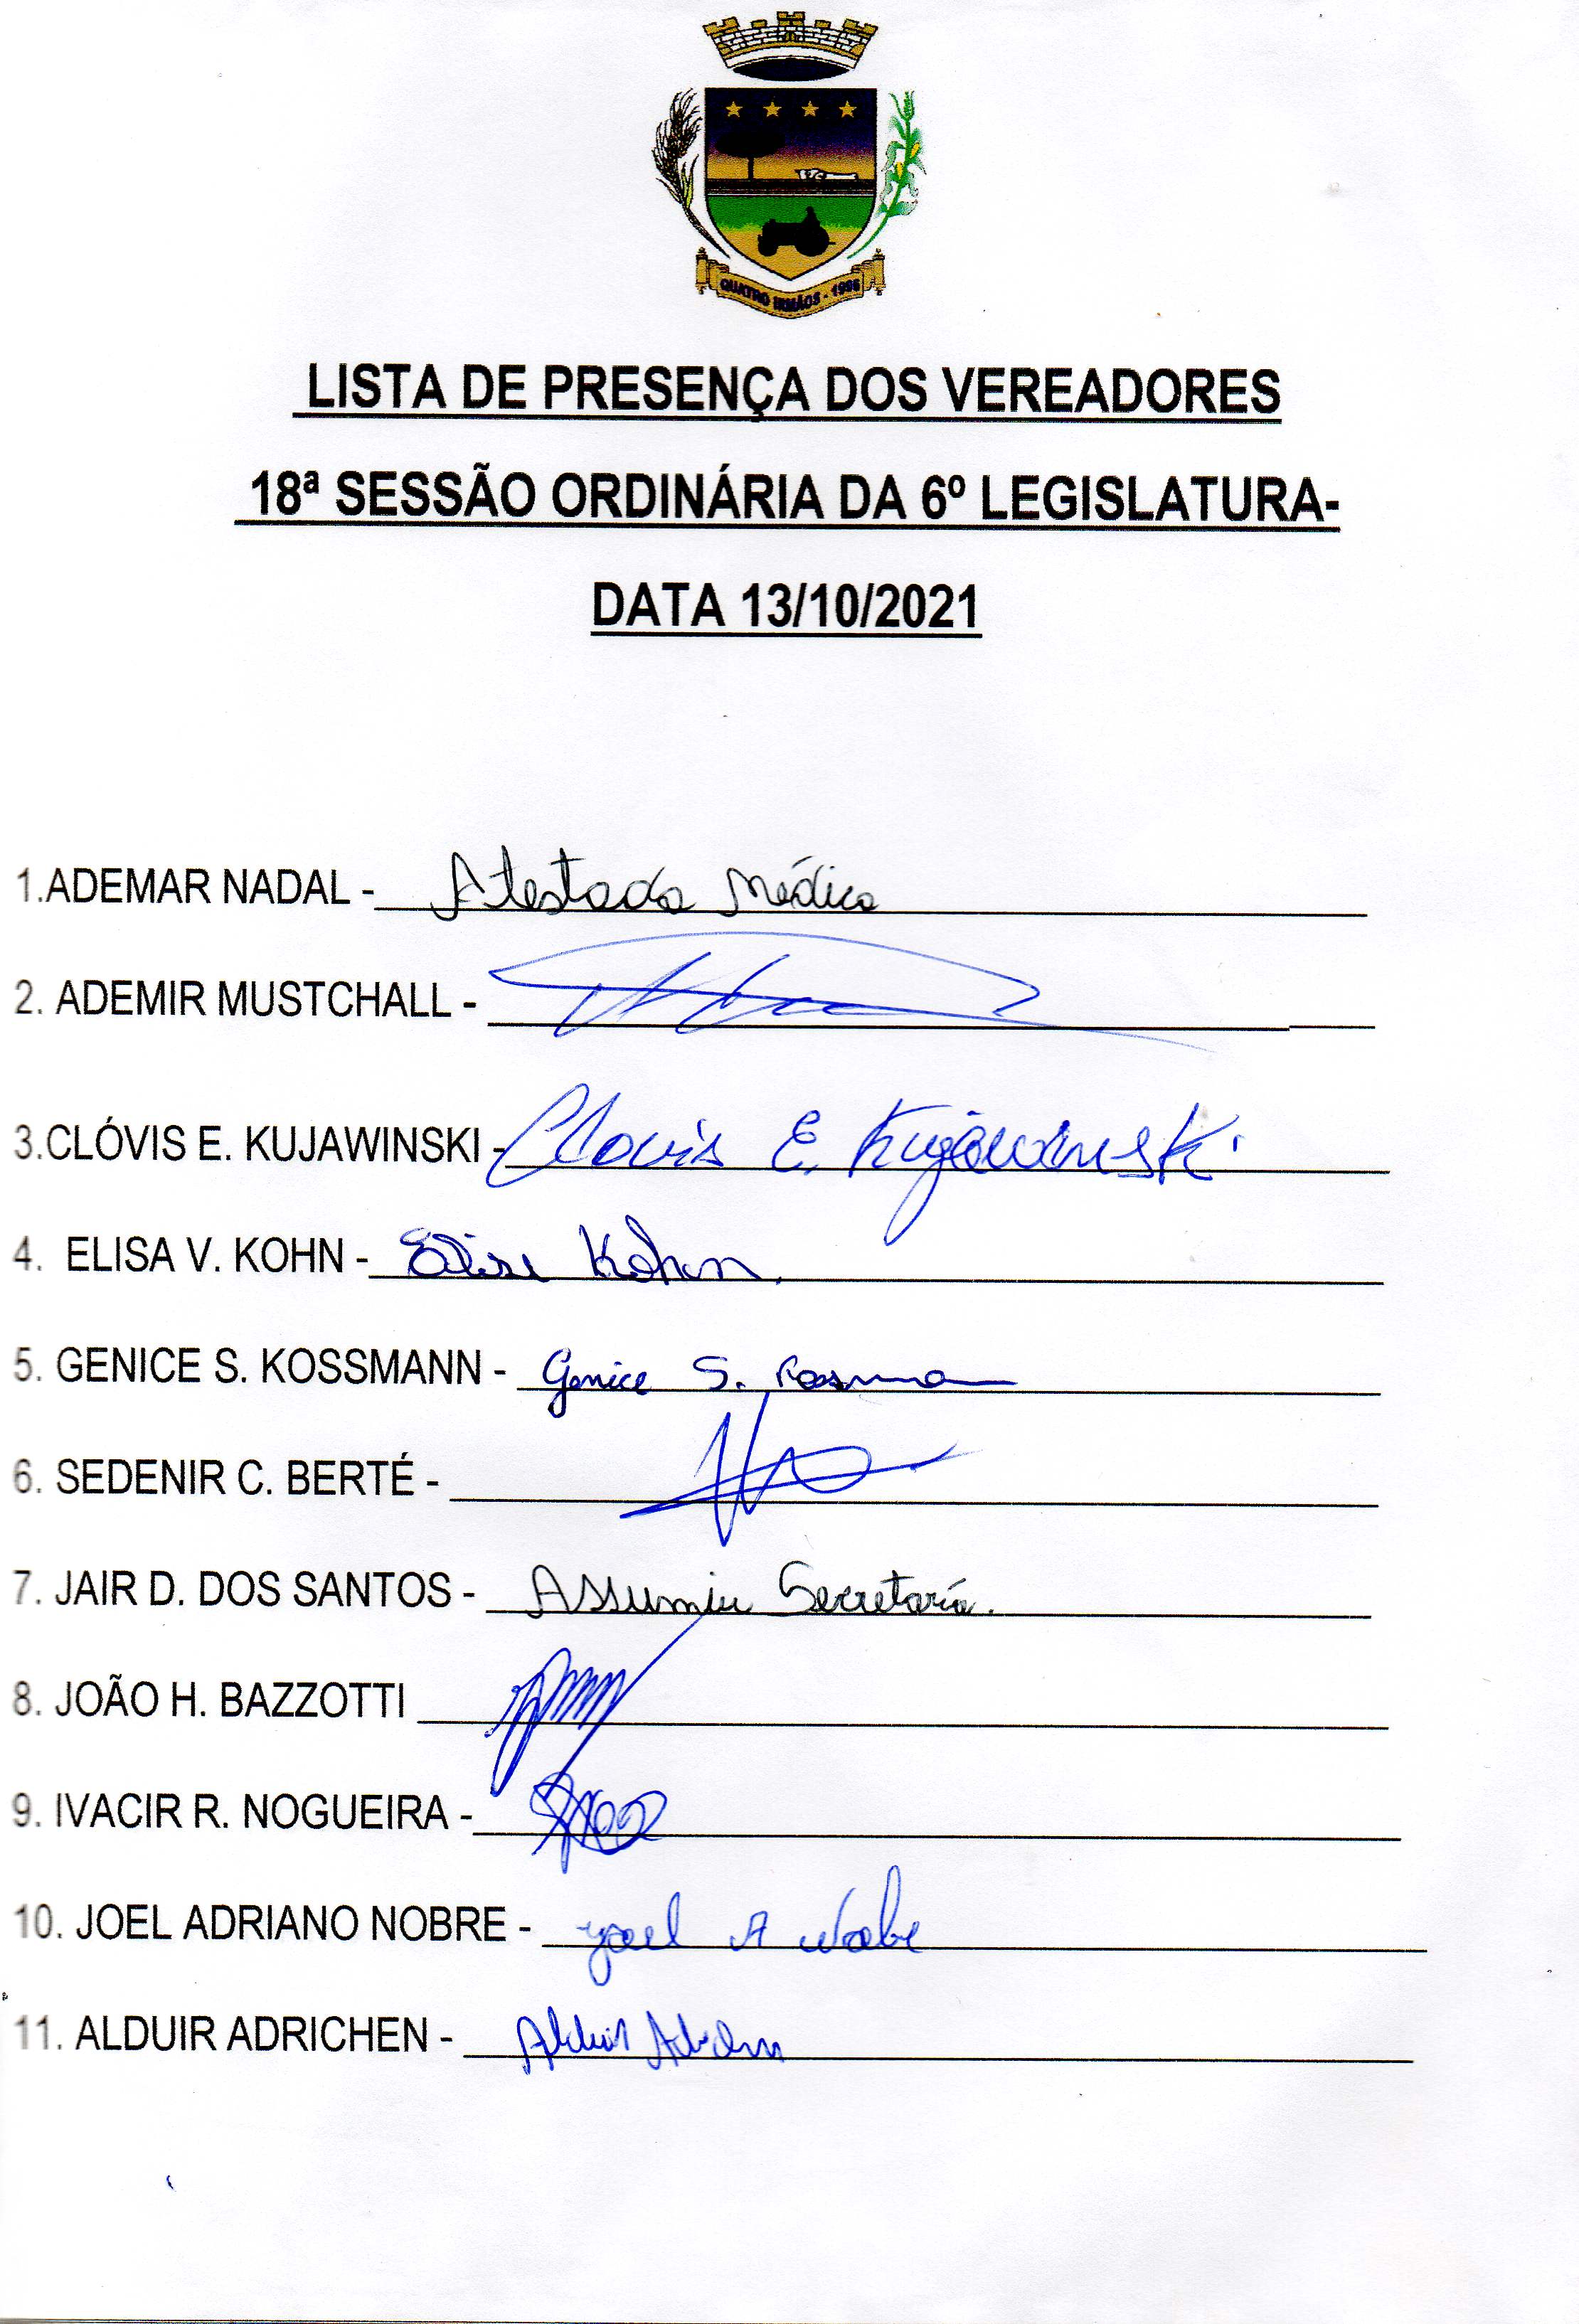 QUATRO IRMÃOS - 1996
LISTA DE PRESENÇA DOS VEREADORES
18ª SESSÃO ORDINÁRIA DA 6º LEGISLATURA-
DATA 13/10/2021
1.ADEMAR NADAL - Atestado Médico
2. ADEMIR MUSTCHALL -
3.CLÓVIS E. KUJAWINSKI - Clovis E. Kujawinski
4. ELISA V. KOHN - Elisa Kohn
5. GENICE S. KOSSMANN - Genice S. Kossmann
6. SEDENIR C. BERTÉ -
7. JAIR D. DOS SANTOS - Assumiu Secretaria.
8. JOÃO H. BAZZOTTI
9. IVACIR R. NOGUEIRA -
10. JOEL ADRIANO NOBRE - Joel A Nobre
11. ALDUIR ADRICHEN - Alduir